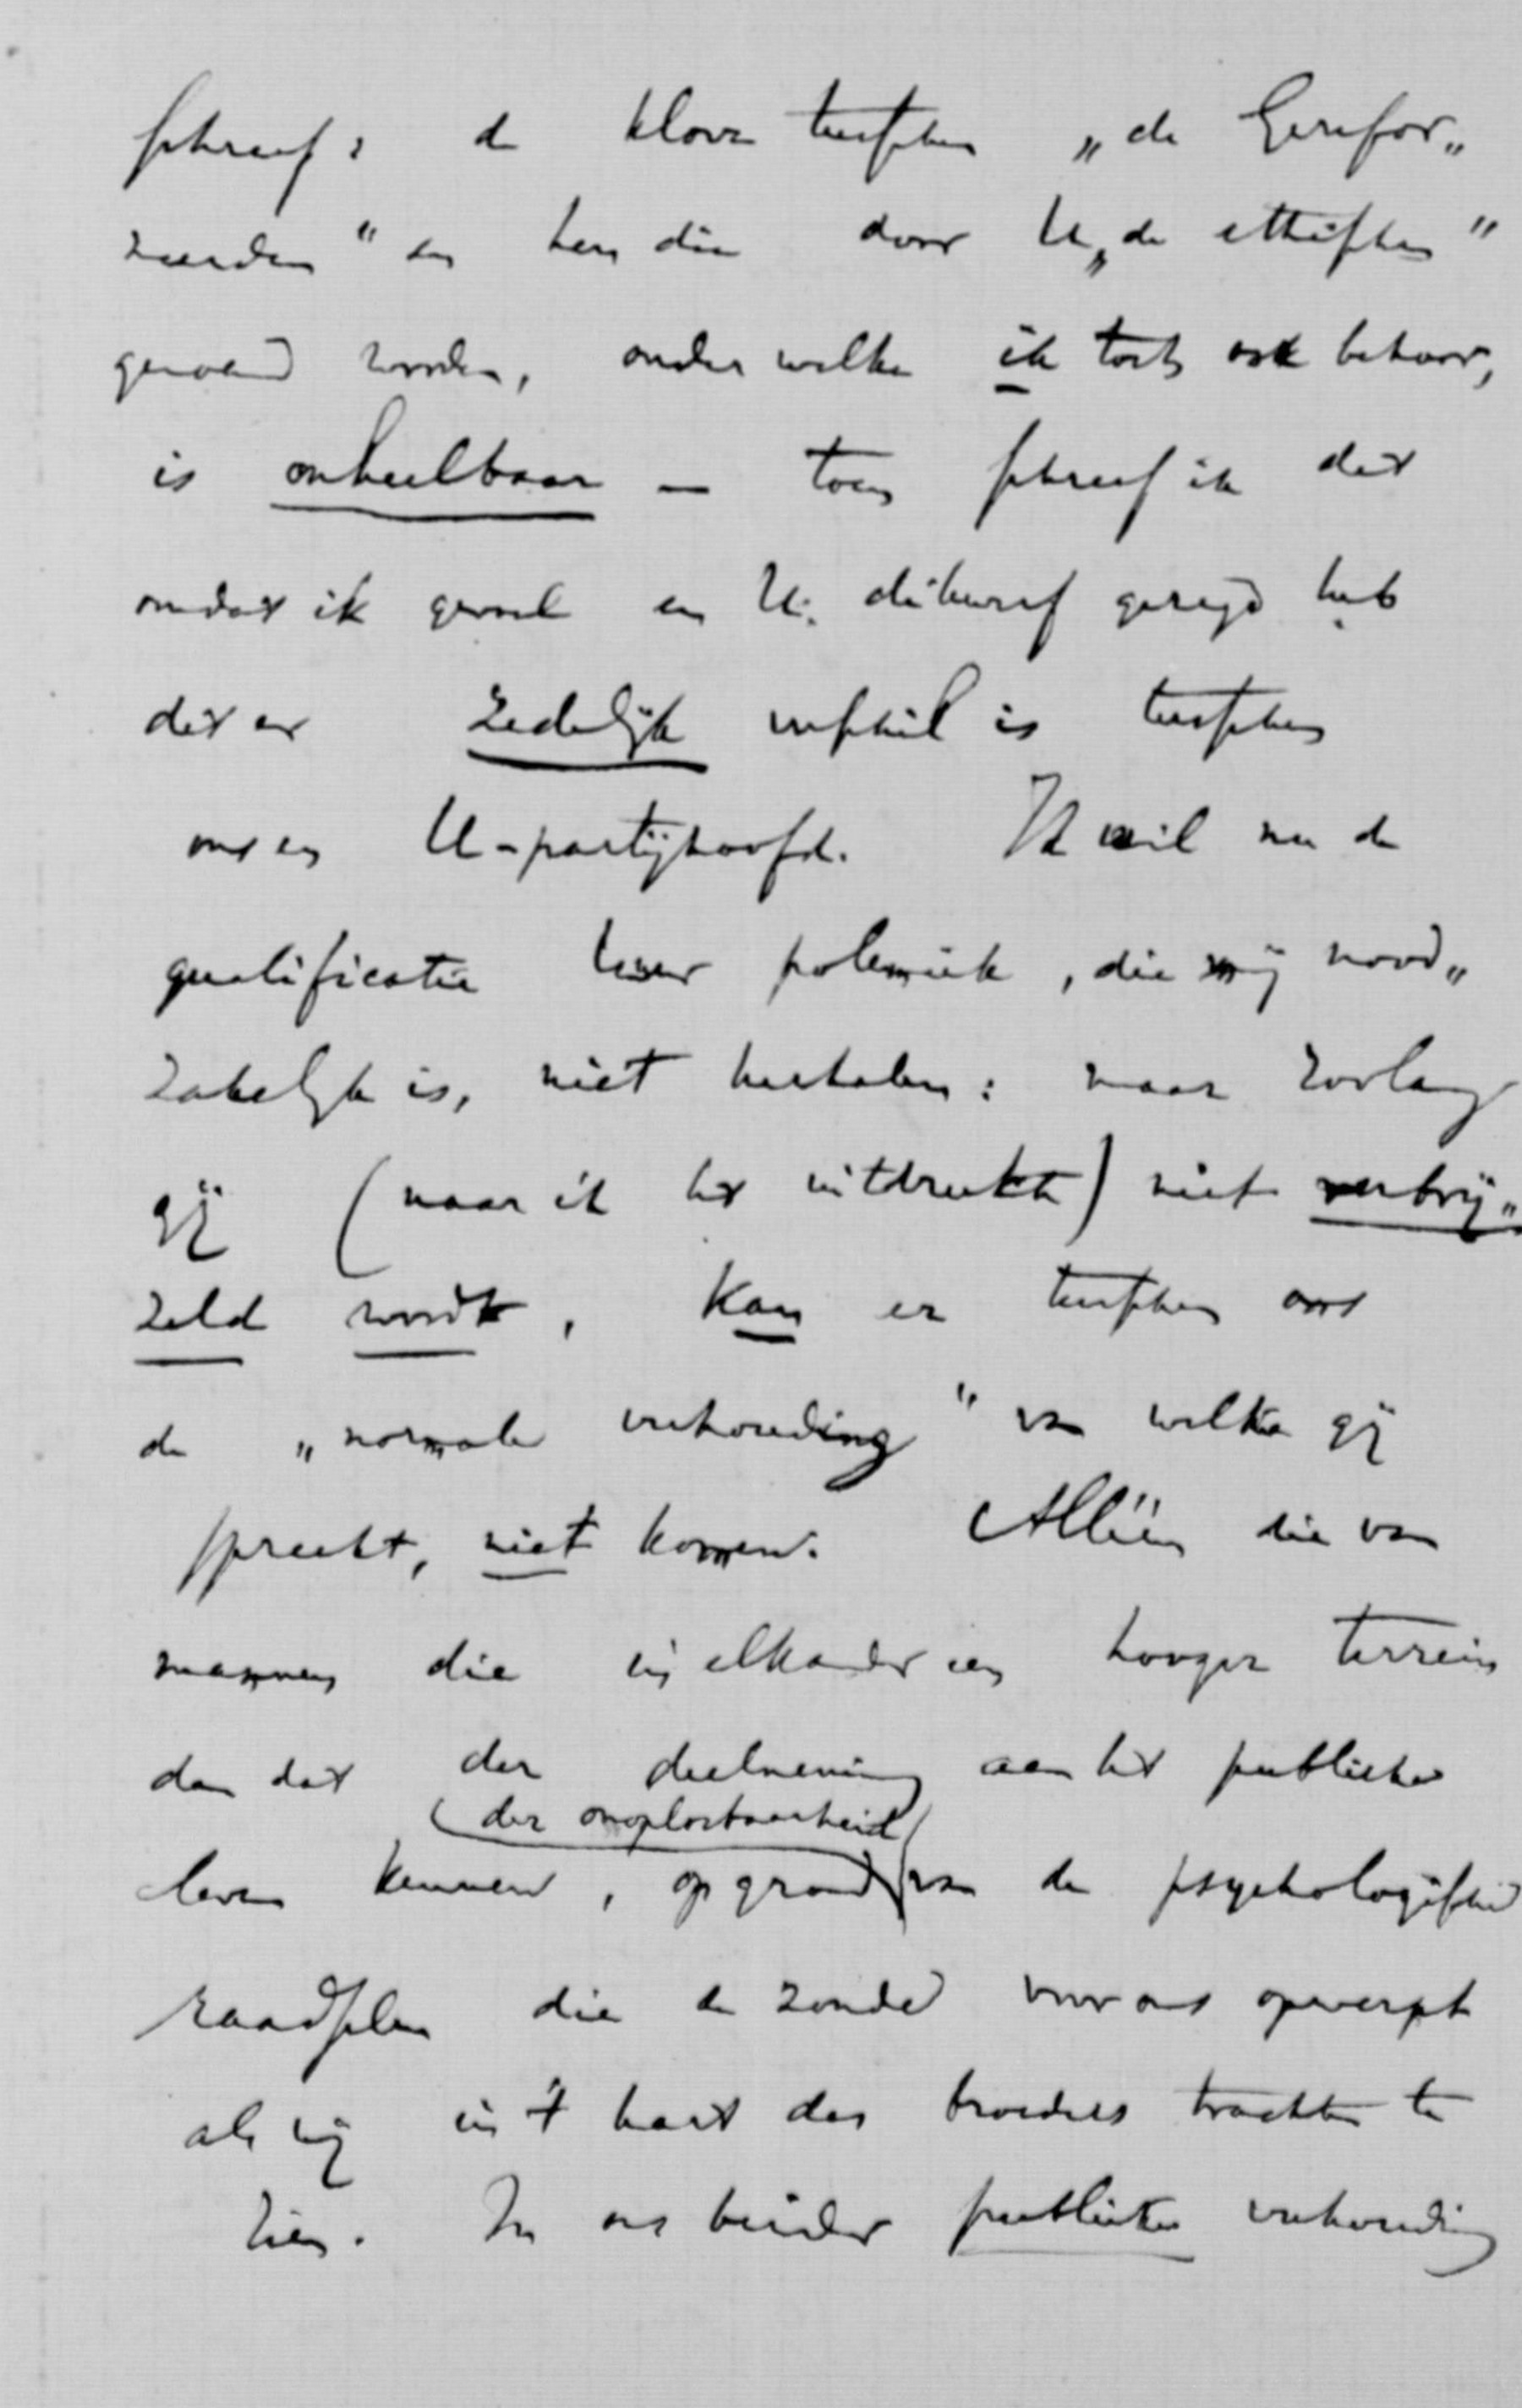 schreef: de kloove tusschen „de Gerefor„
meerden" en hen die door U „de ethischen"
genoemd worden, onder welke ik toch ook behoor,
is onheelbaar — toen schreef ik dit
omdat ik gevoel en U. dikwerf gezegd heb
dat er zedelijk verschil is tusschen
ons en U-partijhoofd. Ik wil nu de
qualificatie uwer polemiek, die mij nood„
zakelijk is, niet herhalen: maar zoolang
gij (naar ik het uitdrukte) niet verbrij„
zeld wordt, kan er tusschen ons
de „normale verhouding" van welke gij
spreekt, niet komen. Alléén die van
mannen die in elkander een hooger terrein
dan dat der deelneming aan het publieke
leven kennen, op grond (der onoplosbaarheid) van de psychologische
raadselen die de zonde voor ons opwerpt
als wij in 't hart des broeders trachten te
zien. In ons beider publieke verhouding